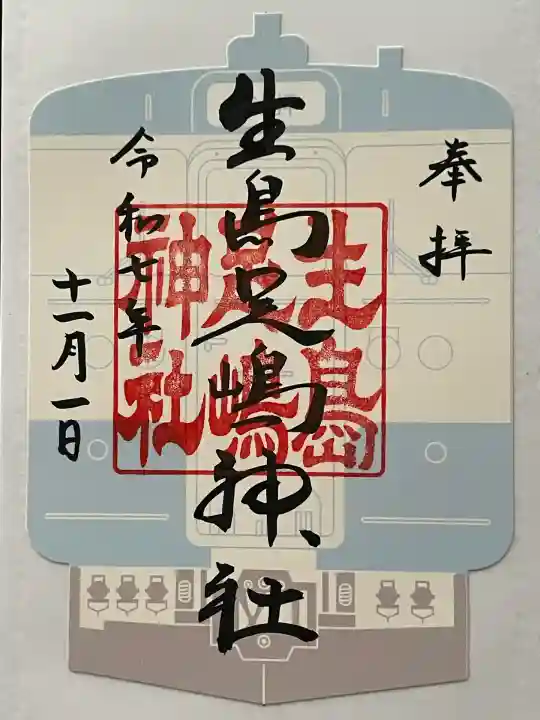 奉拝
生島足嶋神社
生島
足嶋
神社
令和七年
十一月一日